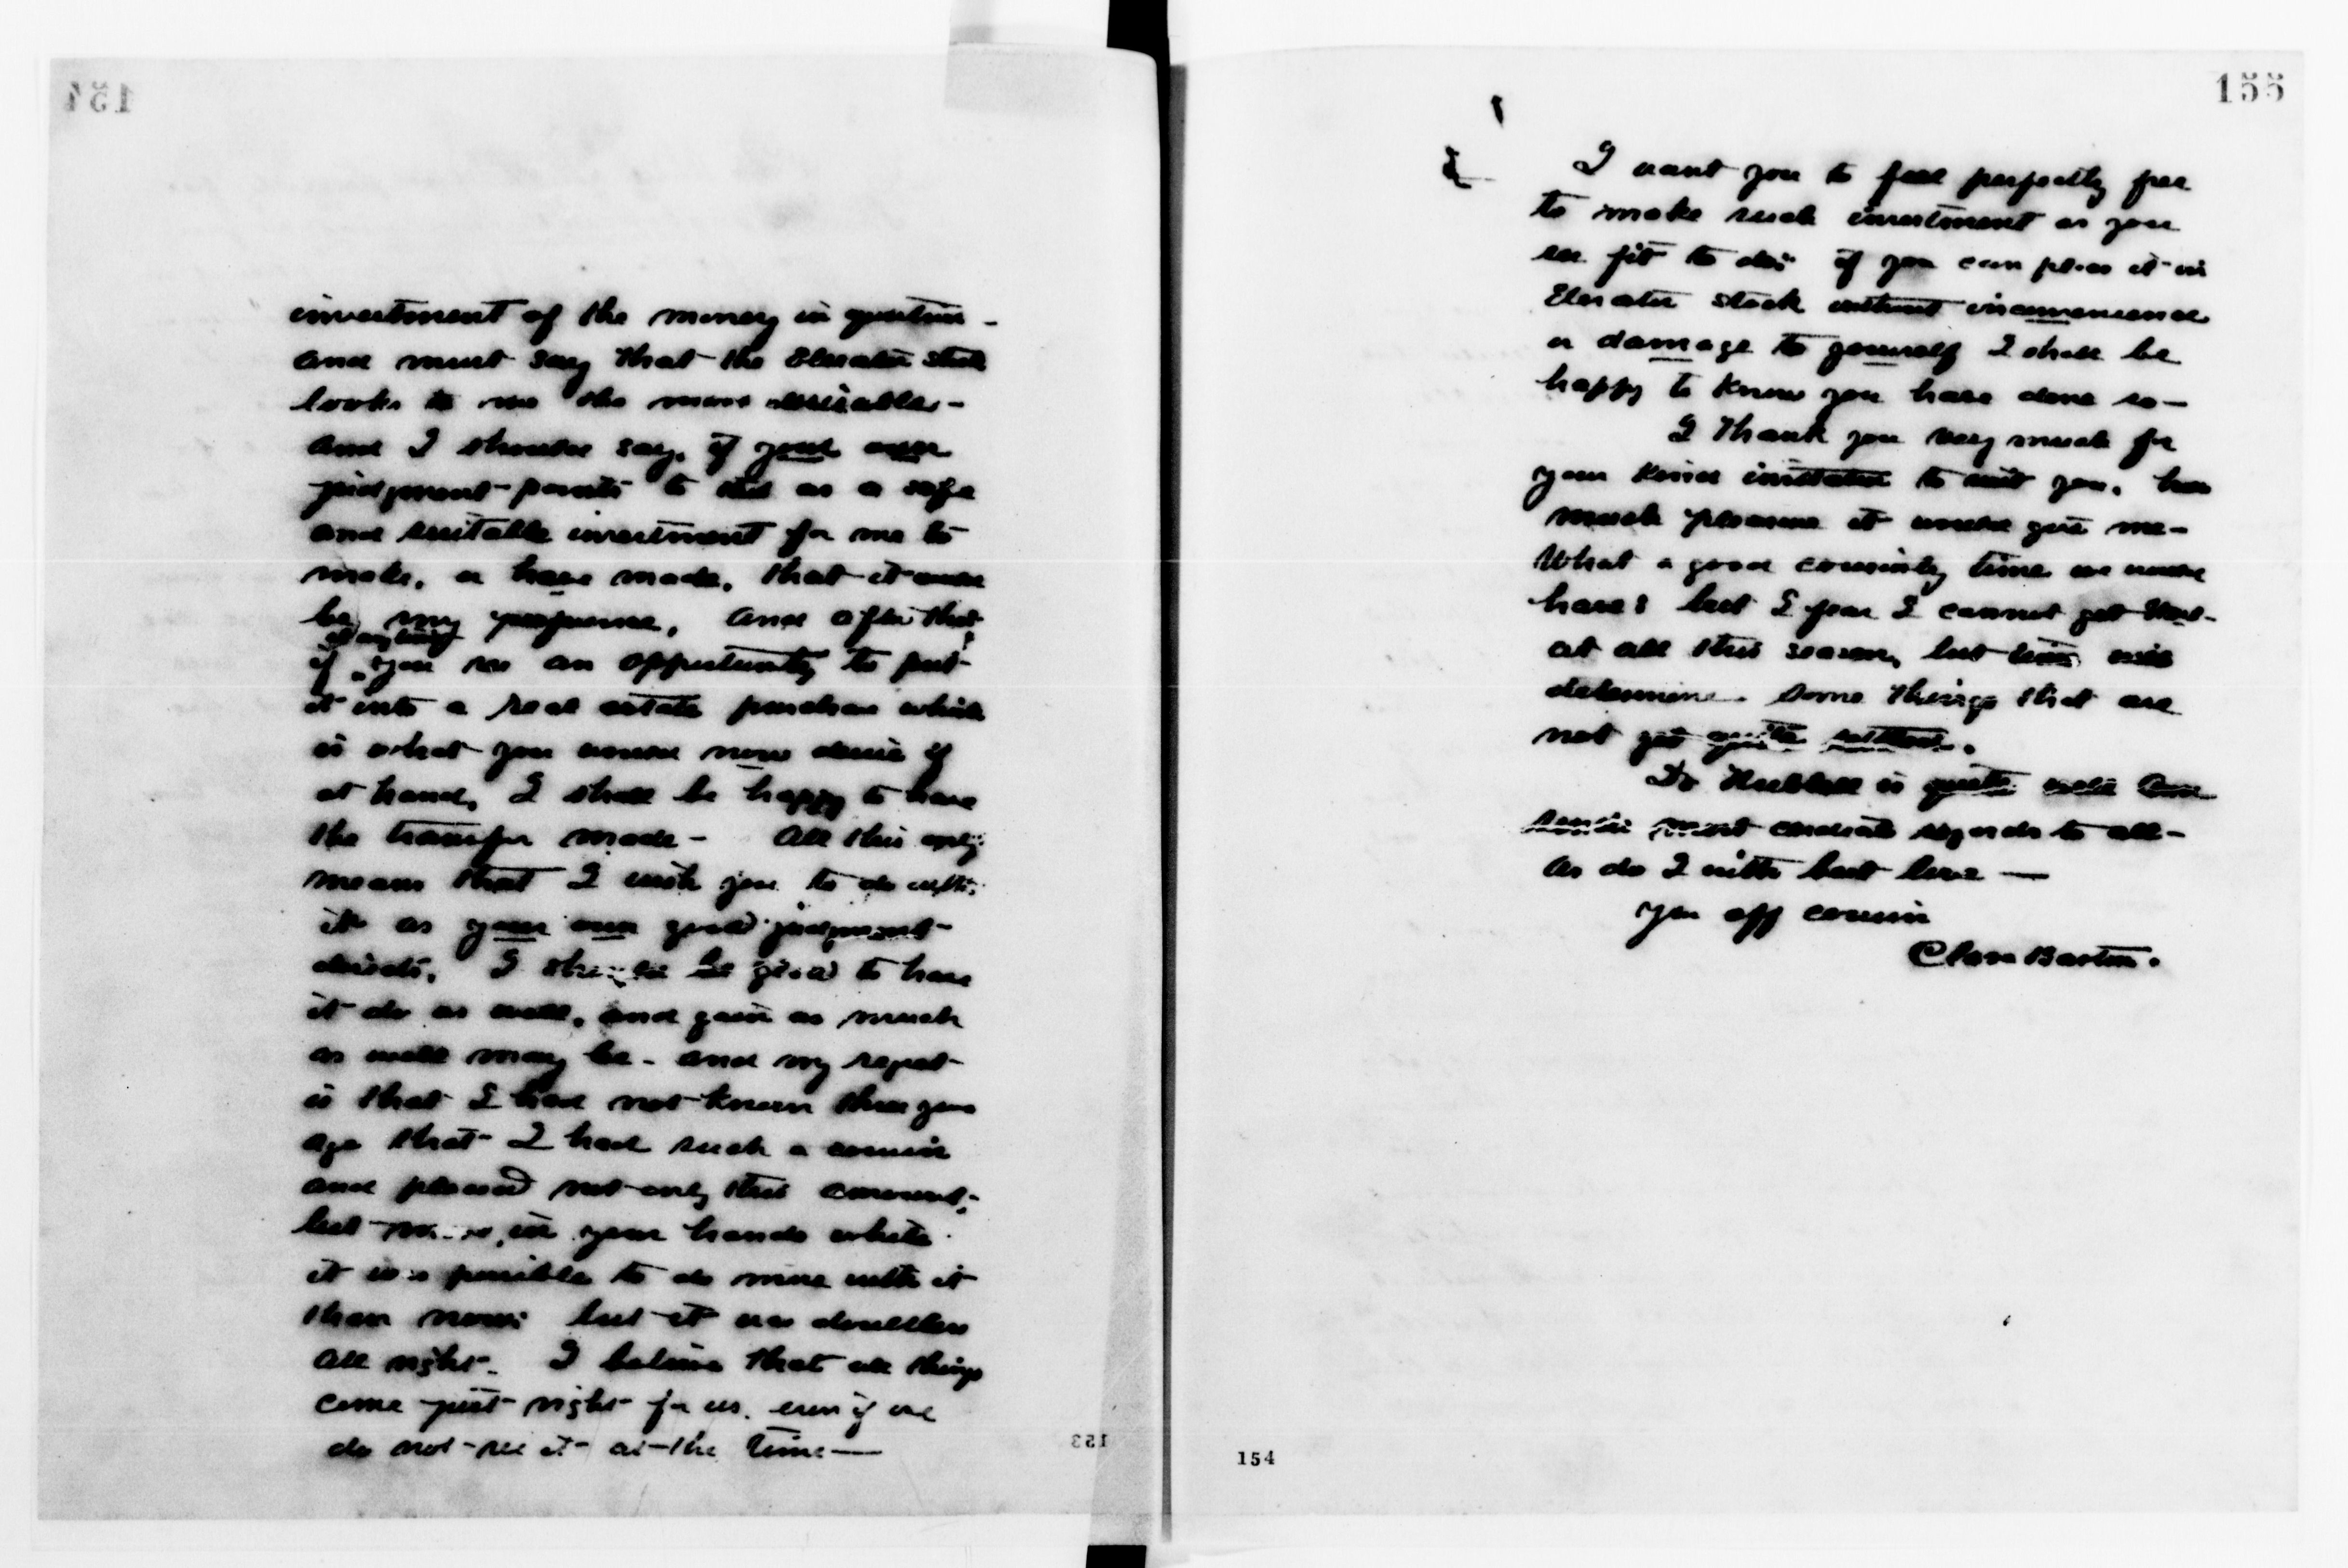 154
investment of the money in question -
and must say that the Elevator stock
looks to me the more desirable -
and I should say, if your own
judgment points to this as a safe
and suitable investment for me to
make, or have made, that it would
be my preference, and after that
at any time
if you see an opportunity to put
it into a real estate purchase which
is what you would now desire if
at hand, I shall be happy to have
the transfer made - All this only
means that I wish you to do with
it as your own good judgment
directs. I should be glad to have
it do as well, and gain as much
as well may be - and my regret
is that I had not known three years
ago that I had such a cousin
and placed not only this amount,
but more, in your hands while
it was possible to do more with it
than now; but it was doubtless
all right. I believe that all things
come just right for us, even if we
do not see it at the time —
153
155
I want you to feel perfectly free
to make such investment as you
see fit to do; if you can place it in
Elevator stock without inconvenience
or damage to yourself I shall be
happy to know you have done so —
I thank you very much for
your kind invitation to visit you, how
much pleasure it would give me -
What a good cousinly time we would
have; but I fear I cannot get West
at all this season, but time will
determine some things that are
not yet quite settled.
Dr Hubbell is quite well and
sends most cordial regards to all -
as do I with best love —
Your aff cousin
Clara Barton.
154